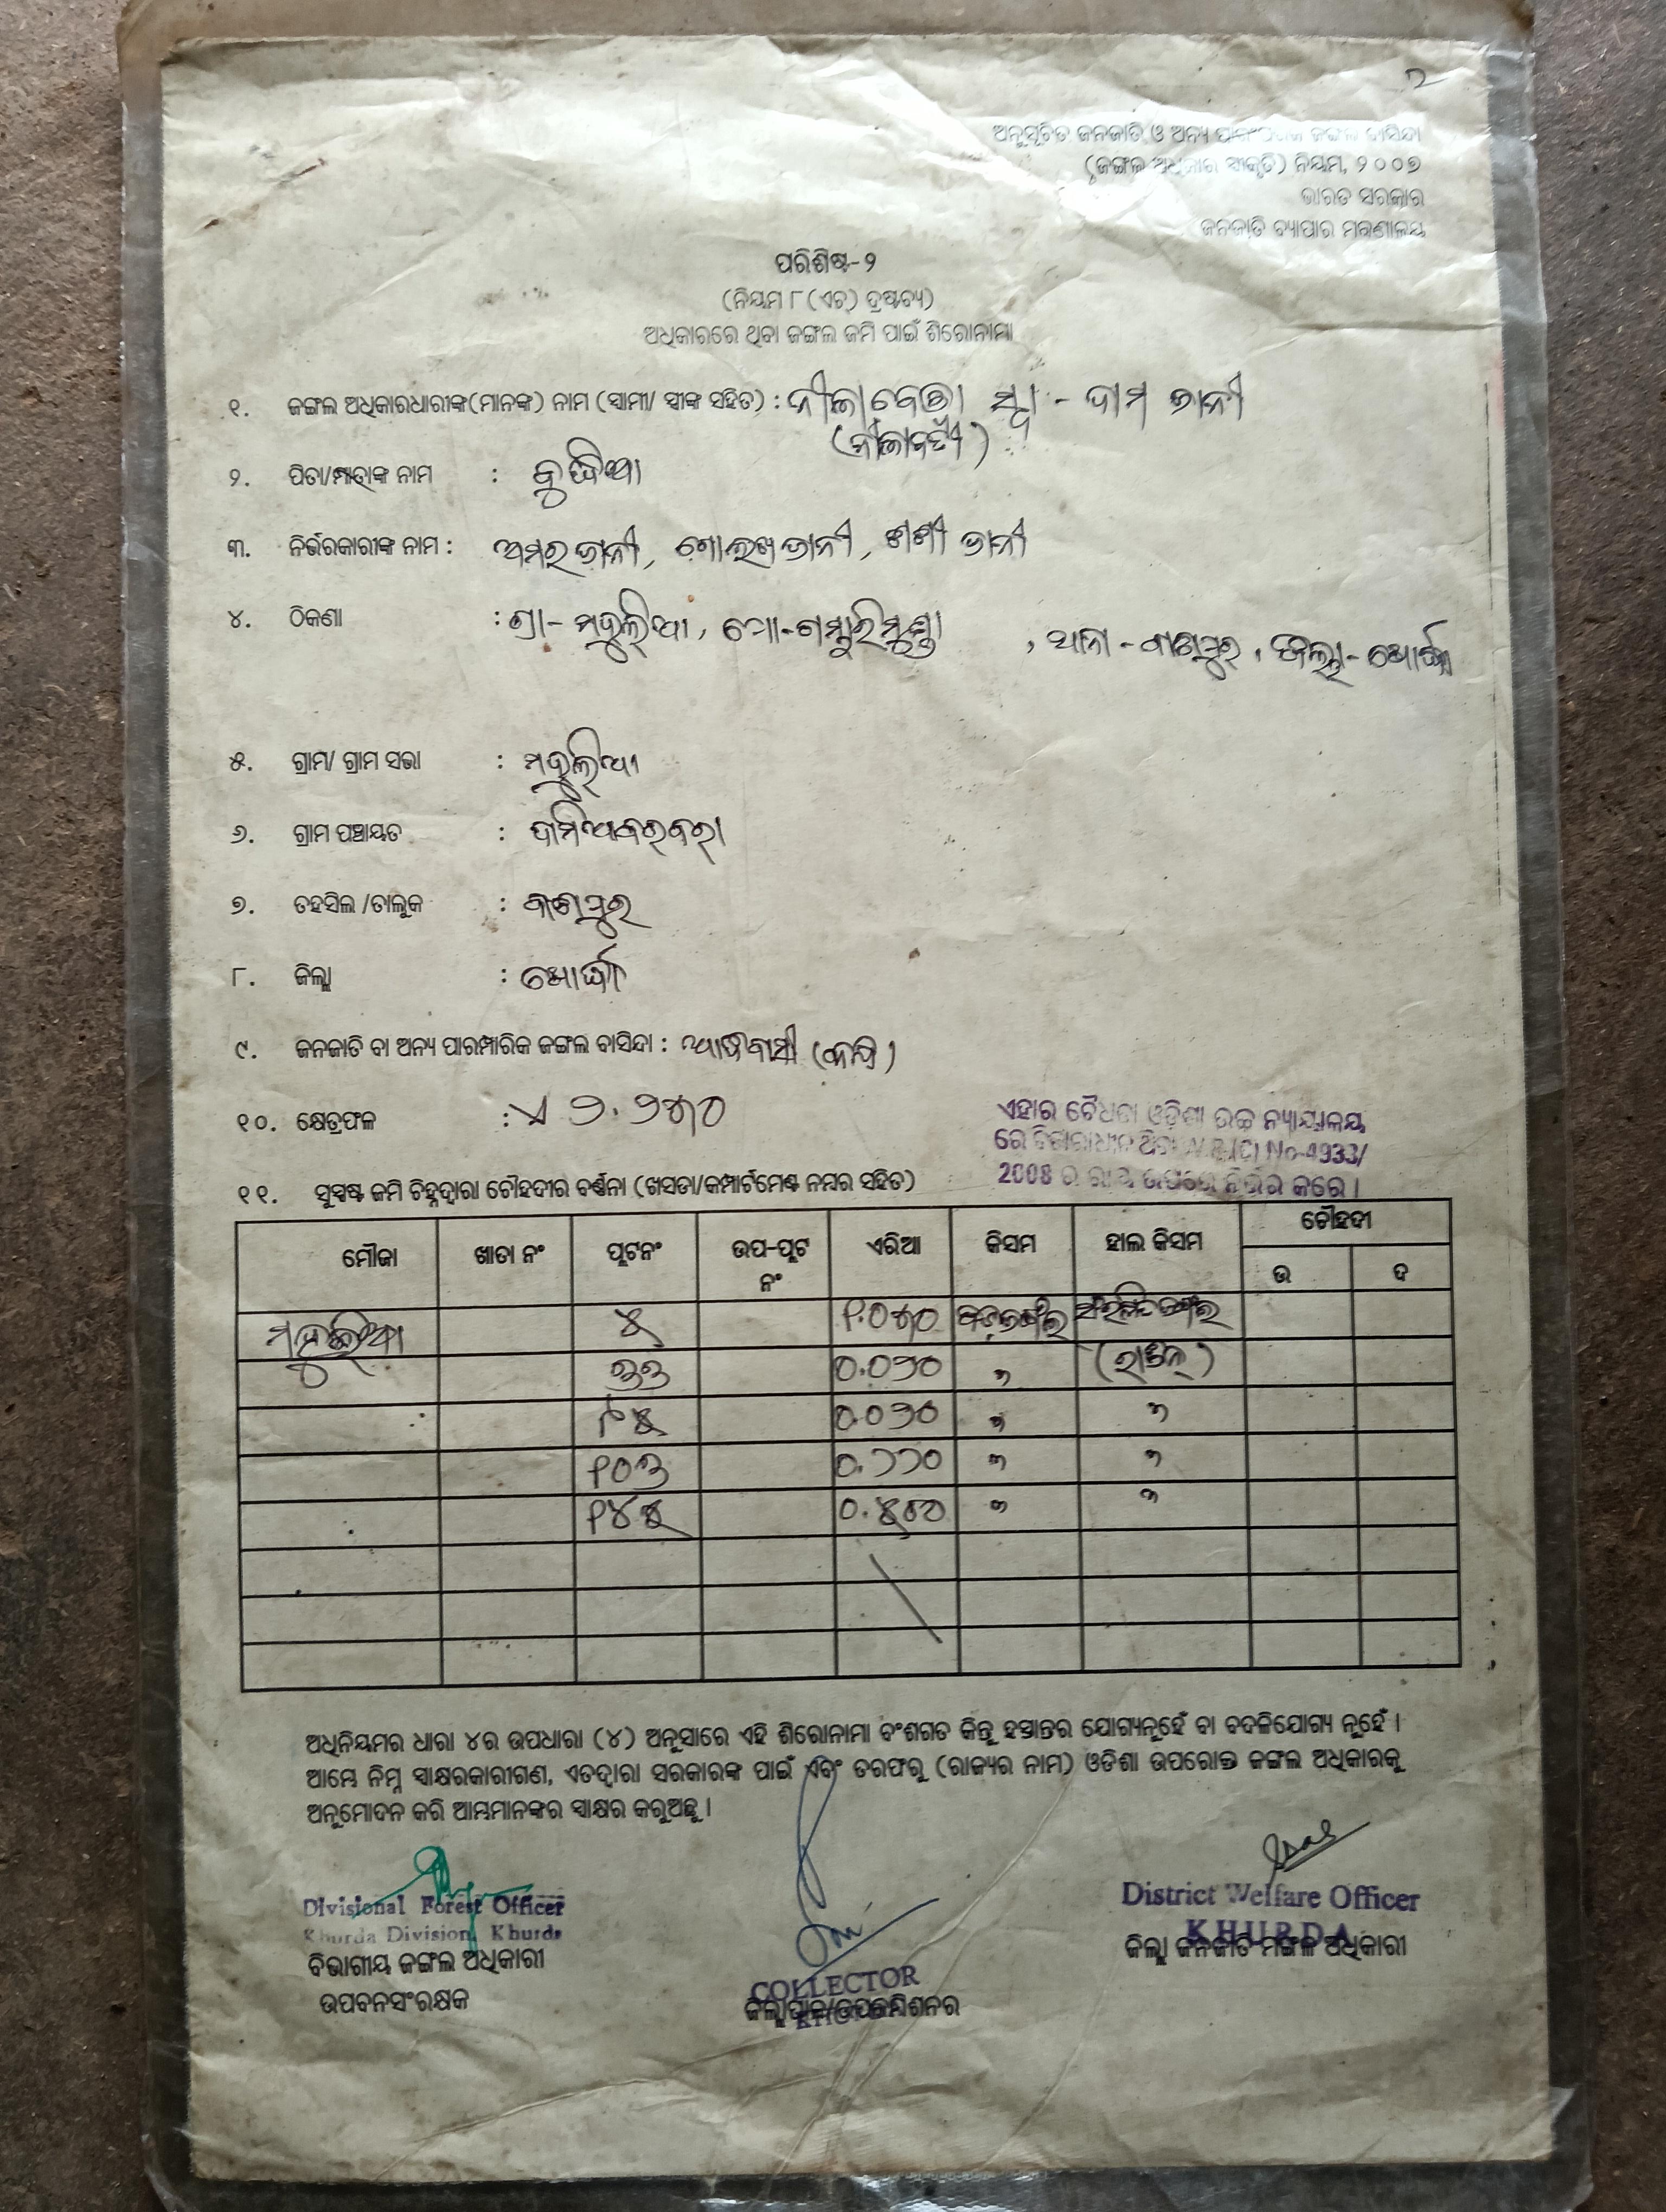 ୨
ଅନୁସୂଚିତ ଜନଜାତି ଓ ଅନ୍ୟ ପାରମ୍ପରିକ ଜଙ୍ଗଲ ବାସିନ୍ଦା
(ଜଙ୍ଗଲ ଅଧିକାର ସ୍ୱୀକୃତି) ନିୟମ, ୨୦୦୭
ଭାରତ ସରକାର
ଜନଜାତି ବ୍ୟାପାର ମନ୍ତ୍ରଣାଳୟ
ପରିଶିଷ୍ଟ-୨
(ନିୟମ ୮(ଏଚ) ଦ୍ରଷ୍ଟବ୍ୟ)
ଅଧିକାରରେ ଥିବା ଜଙ୍ଗଲ ଜମି ପାଇଁ ଶିରୋନାମା
୧. ଜଙ୍ଗଲ ଅଧିକାରଧାରୀଙ୍କ(ମାନଙ୍କ) ନାମ (ସ୍ୱାମୀ/ ସ୍ତ୍ରୀଙ୍କ ସହିତ) : ଦାମ ଜାନୀ
୨. ପିତା/ମାତାଙ୍କ ନାମ :
୩. ନିର୍ଭରକାରୀଙ୍କ ନାମ : ଅମର ଜାନୀ, ଗୋଲଖ ଜାନୀ, ଶଶୀ ଜାନୀ
୪. ଠିକଣା : ଗ୍ରା- ମହୁଲିଆ, ପୋ-ଗମ୍ଭାରିମୁଣ୍ଡା , ଥାନା - ବାଣପୁର, ଜିଲ୍ଲା- ଖୋର୍ଦ୍ଧା
୫. ଗ୍ରାମ/ ଗ୍ରାମ ସଭା : ମହୁଲିଆ
୬. ଗ୍ରାମ ପଞ୍ଚାୟତ : ଦାମିଆବରବରା
୭. ତହସିଲ /ତାଲୁକ : ବାଣପୁର
୮. ଜିଲ୍ଲା : ଖୋର୍ଦ୍ଧା
୯. ଜନଜାତି ବା ଅନ୍ୟ ପାରମ୍ପାରିକ ଜଙ୍ଗଲ ବାସିନ୍ଦା : ଆଦିବାସୀ (କନ୍ଧ)
୧୦. କ୍ଷେତ୍ରଫଳ : ଏ ୨.୨୫୦
ଏହାର ବୈଧତା ଓଡ଼ିଶା ଉଚ୍ଚ ନ୍ୟାୟାଳୟ
ରେ ବିଚାରାଧୀନ ଥିବା W.P.(C) No-4933/
2008 ର ରାୟ ଉପରେ ନିର୍ଭର କରେ ।
୧୧. ସୁସ୍ପଷ୍ଟ ଜମି ଚିହ୍ନଦ୍ୱାରା ଚୌହଦୀର ବର୍ଣ୍ଣନା (ଖସଡା/କମ୍ପାର୍ଟମେଣ୍ଟ ନମ୍ବର ସହିତ)
ମୌଜା ଖାତା ନଂ ପ୍ଲଟନଂ ଉପ-ପ୍ଲଟ ନଂ ଏରିଆ କିସମ ହାଲ କିସମ ଚୌହଦୀ
ଉ ଦ
ମହୁଲିଆ ୫ ୧.୦୫୦
୩୩ ୦.୦୨୦ "
୯୫ ୦.୦୨୦ " "
୧୦୩ ୦.୭୭୦ " "
୧୪୫ " "
ଅଧିନିୟମର ଧାରା ୪ର ଉପଧାରା (୪) ଅନୁସାରେ ଏହି ଶିରୋନାମା ବଂଶଗତ କିନ୍ତୁ ହସ୍ତାନ୍ତର ଯୋଗ୍ୟନୁହେଁ ବା ବଦଳିଯୋଗ୍ୟ ନୁହେଁ ।
ଆମ୍ଭେ ନିମ୍ନ ସ୍ୱାକ୍ଷରକାରୀଗଣ, ଏତଦ୍ୱାରା ସରକାରଙ୍କ ପାଇଁ ଏବଂ ତରଫରୁ (ରାଜ୍ୟର ନାମ) ଓଡିଶା ଉପରୋକ୍ତ ଜଙ୍ଗଲ ଅଧିକାରକୁ
ଅନୁମୋଦନ କରି ଆମ୍ଭମାନଙ୍କର ସ୍ୱାକ୍ଷର କରୁଅଛୁ ।
Divisional Forest Officer
Khurda Division, Khurda
ବିଭାଗୀୟ ଜଙ୍ଗଲ ଅଧିକାରୀ
ଉପବନସଂରକ୍ଷକ
COLLECTOR
ଜିଲ୍ଲାପାଳ/ଉପକମିଶନର
District Welfare Officer
KHURDA
ଜିଲ୍ଲା ଜନଜାତି ମଙ୍ଗଳ ଅଧିକାରୀ